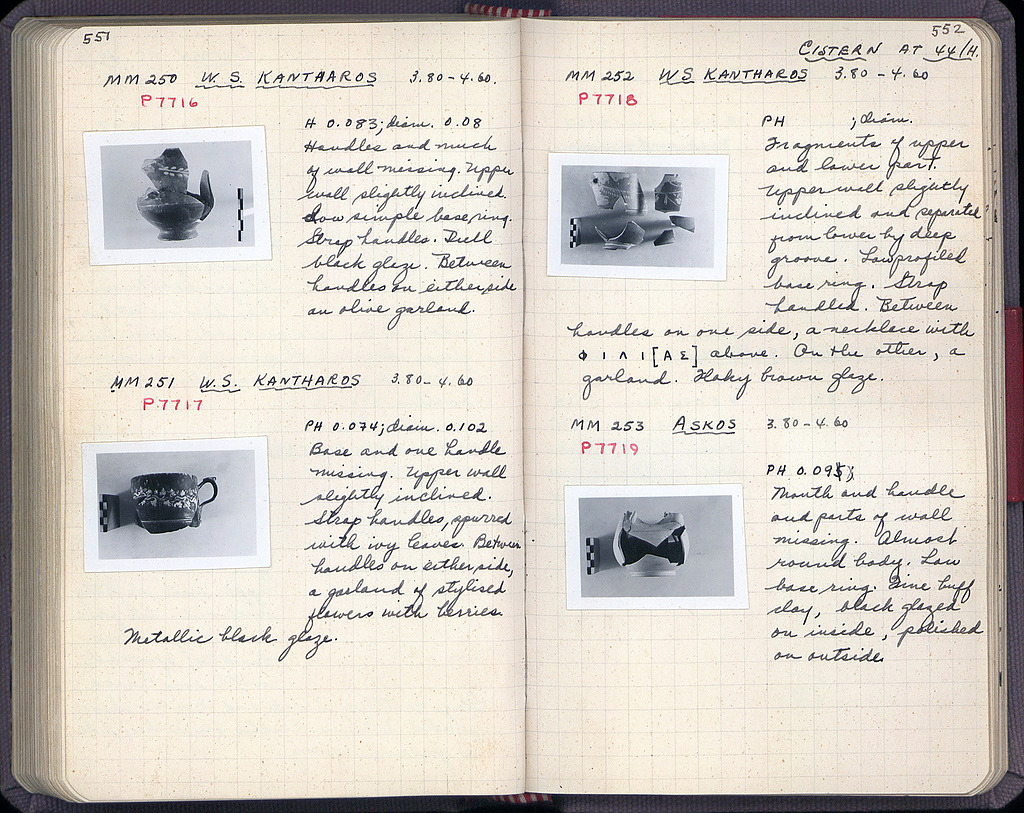 551
MM 250 W. S. KANTHAROS 3.80-4.60.
P7716
H 0.083; diam. 0.08
Handles and much
of wall missing. Upper
wall slightly inclined.
Low simple base ring.
Strap handles. Dull
black glaze. Between
handles on either side
an olive garland.
MM 251 W.S. KANTHAROS 3.80-4.60
P7717
PH 0.074; diam. 0.102
Base and one handle
missing. Upper wall
slightly inclined.
Strap handles, spurred
with ivy leaves. Between
handles on either side,
a garland of stylised
flowers with berries.
Metallic black glaze.
552
CISTERN AT 44/H.
MM 252 WS KANTHAROS 3.80-4.60
P7718
PH ; diam.
Fragments of upper
and lower part.
Upper wall slightly
inclined and separated
from lower by deep
groove. Low profiled
base ring. Strap
handled. Between
handles on one side, a necklace with
Φ Ι Λ Ι [Α Σ] above. On the other, a
garland. Flaky brown glaze.
MM 253 ASKOS 3.80-4.60
P7719
PH 0.095;
Mouth and handle
and parts of wall
missing. Almost
round body. Low
base ring. Fine buff
clay, black glazed
on inside, polished
on outside.